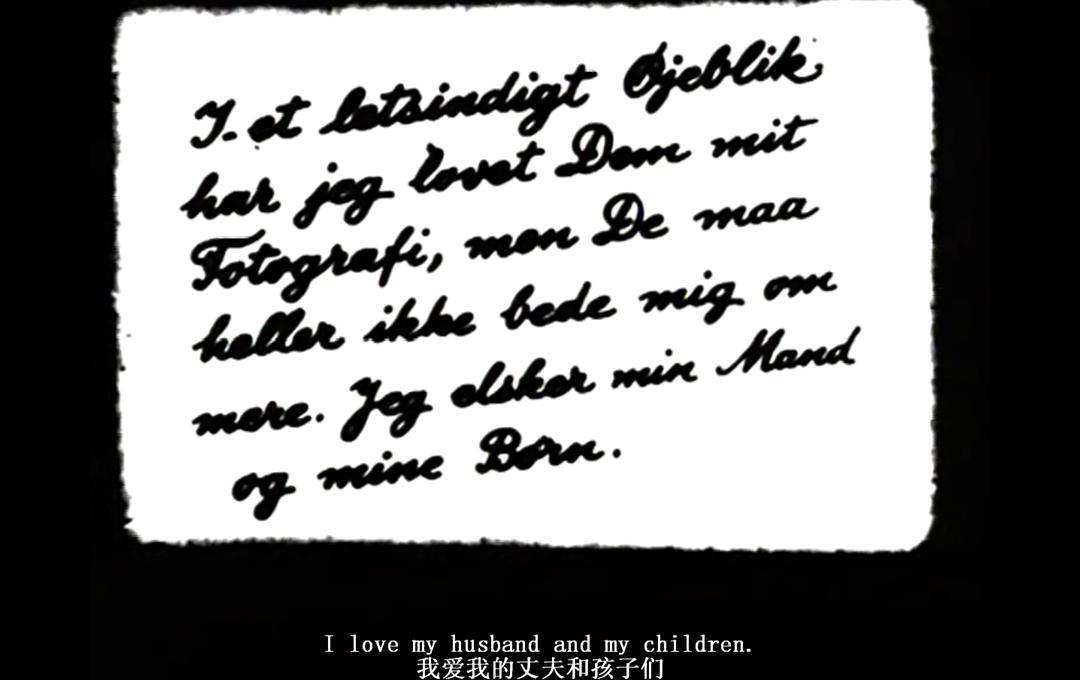 I et letsindigt Øjeblik
har jeg lovet Dem mit
Fotografi, men De maa
heller ikke bede mig om
mere. Jeg elsker min Mand
og mine Børn.
I love my husband and my children.
我爱我的丈夫和孩子们